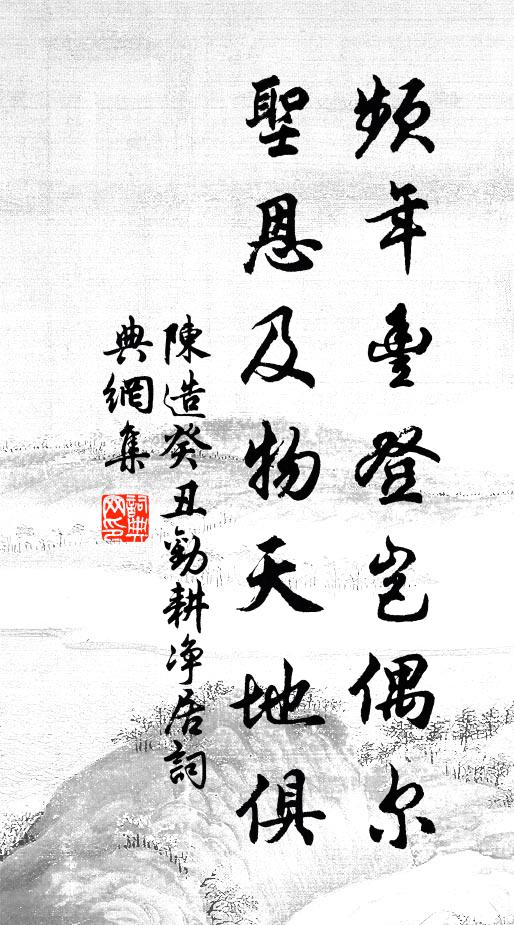 頻年豐登岂偶尔
聖恩及物天地俱
陳造癸丑勸耕净居詞
典網集
詞典
网印